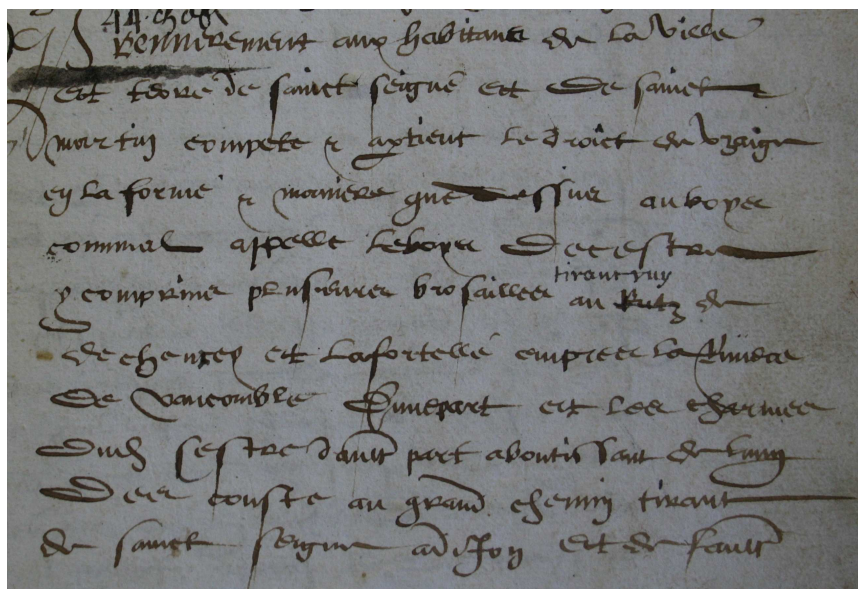 44. chef
Premierement aux habitans de la ville
et terre de sainct seigne et de sainct
martin compete & ap̃tient le droict du usaige
en la forme & maniere que dessus au boys
commal appelle le boys de cestre
tirant ruy
y comprins plusieurs brosailles au de
de chencey et la fortelle empres la riviere
de vaucomble d'une part et les charmes
dud. sestre d'aultr part aboutissant de lung
des couste au grand chemin tirant
de sainct seigne a dijon et de l'aultr